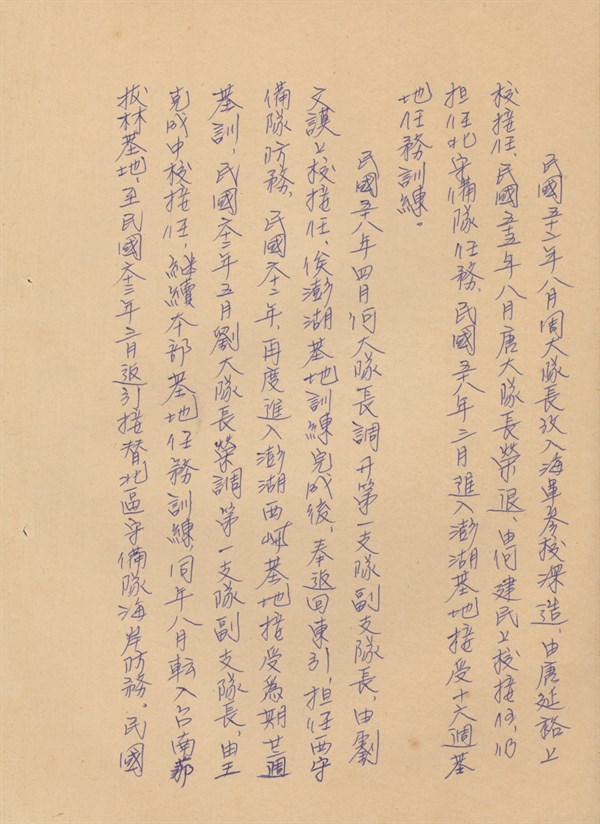 民國五十二年八月周大隊長考入海軍參校深造，由唐延裕上
校接任，民國五五年八月唐大隊長榮退，由何建民上校接任，仍
担任北守備隊任務，民國五八年二月進入澎湖基地接受十六週基
地任務訓練。
民國五八年四月何大隊長調升第一支隊副支隊長，由劉
文謨上校接任，俟澎湖基地訓練完成後，奉返回東引，担任西守
備隊防務，民國六十二年，再度進入澎湖西嶼基地接受為期廿週
基訓，民國六十二年五月劉大隊長榮調第一支隊副支隊長，由王
克成中校接任，繼續本部基地任務訓練，同年八月転入台南
拔林基地，至民國六十三年二月返引接替北區守備隊海岸防務。民國